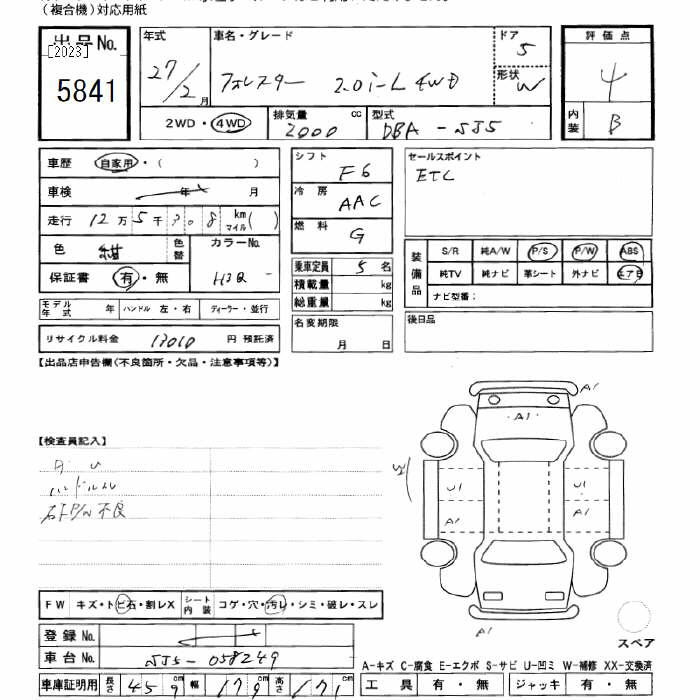 (複合機)対応用紙
出品No.
[2023]
5841
年式
27/2月
車名・グレード
フォレスター 2.0i-L 4WD
ドア
5
形状
W
2WD・4WD
排気量
2000 cc
型式
DBA-SJ5
評価点
4
内装
B
車歴 自家用・( )
車検 年 月
走行 12万5千308 km マイル( )
色 紺 色替
カラーNo.
H3Q
保証書 有・無
モデル年式 年 ハンドル 左・右 ディーラー・並行
リサイクル料金 13010 円 預託済
シフト F6
冷房 AAC
燃料 G
乗車定員 5名
積載量 kg
総重量 kg
名変期限
月 日
セールスポイント
ETC
装備品
S/R 純A/W P/S P/W ABS
純TV 純ナビ 革シート 外ナビ エアB
ナビ型番:
後日品
【出品店申告欄(不良箇所・欠品・注意事項等)】
【検査員記入】
ハンドルスレ
右FP/W不良
A1
A1
U1
U1
A1
A1
A1
FW キズ・トビ石・割レX
シート内装 コゲ・穴・汚レ・シミ・破レ・スレ
登録No.
車台No. SJ5-058249
車庫証明用 長さ 459cm 幅 179cm 高さ 171cm
スペア
A-キズ C-腐食 E-エクボ S-サビ U-凹ミ W-補修 XX-交換済
工具 有・無 ジャッキ 有・無